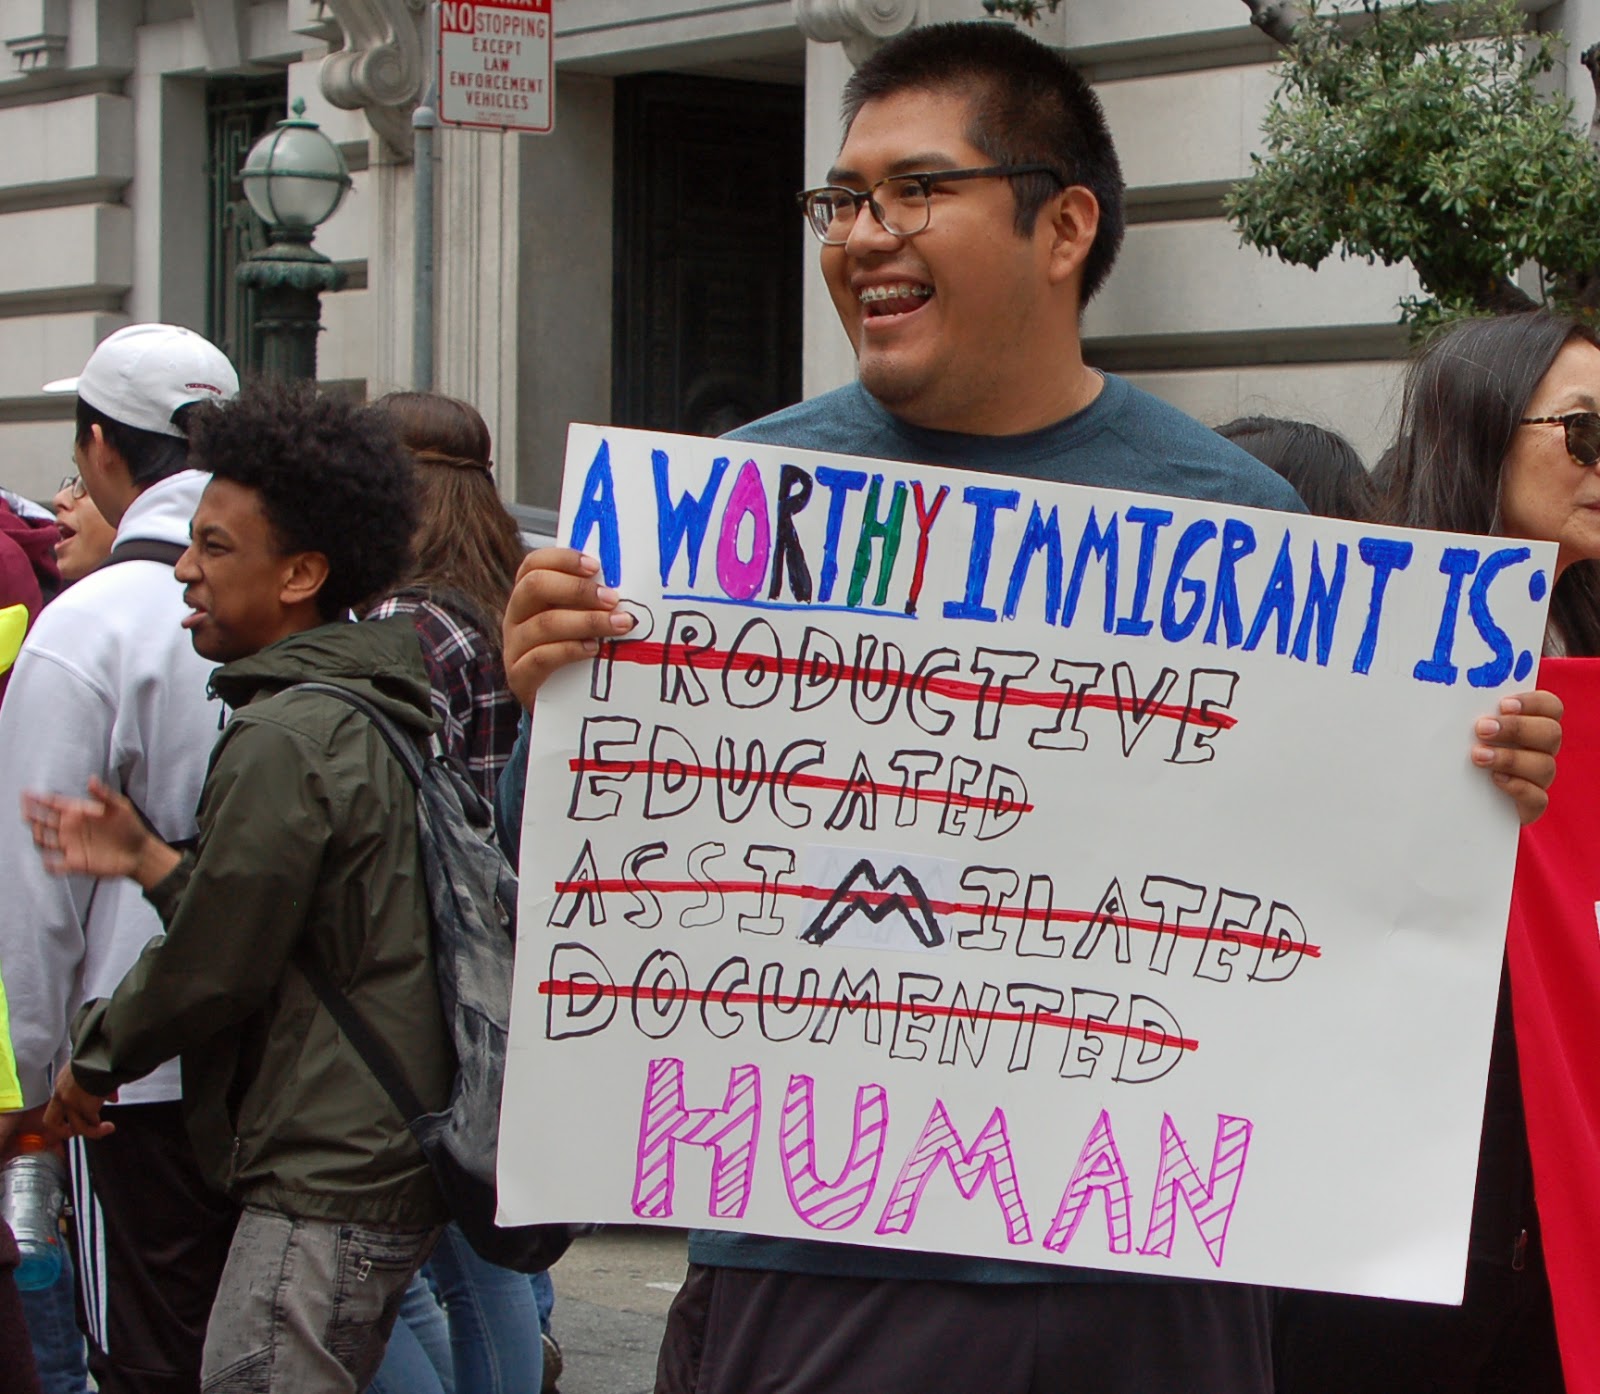 NO STOPPING
EXCEPT
LAW
ENFORCEMENT
VEHICLES
A WORTHY IMMIGRANT IS:
PRODUCTIVE
EDUCATED
ASSIMILATED
DOCUMENTED
HUMAN